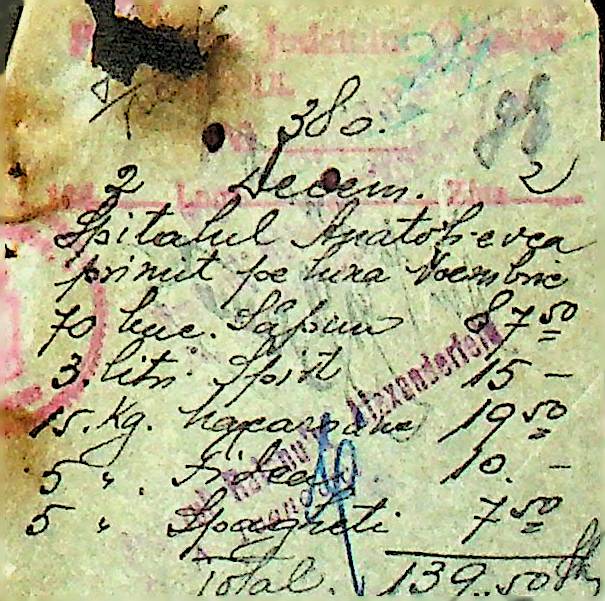 Județului
380.
2 Decem. 2
Spitalul Anatolievca
primit pe luna Noembrie
70 buc. Săpun 87 50
3. litri Spirt 15 –
15. Kg. macaroane 19 50
5 ". Fidea 10. –
5 " Spagheti 7 50
Total. 139..50
Alexanderfeld